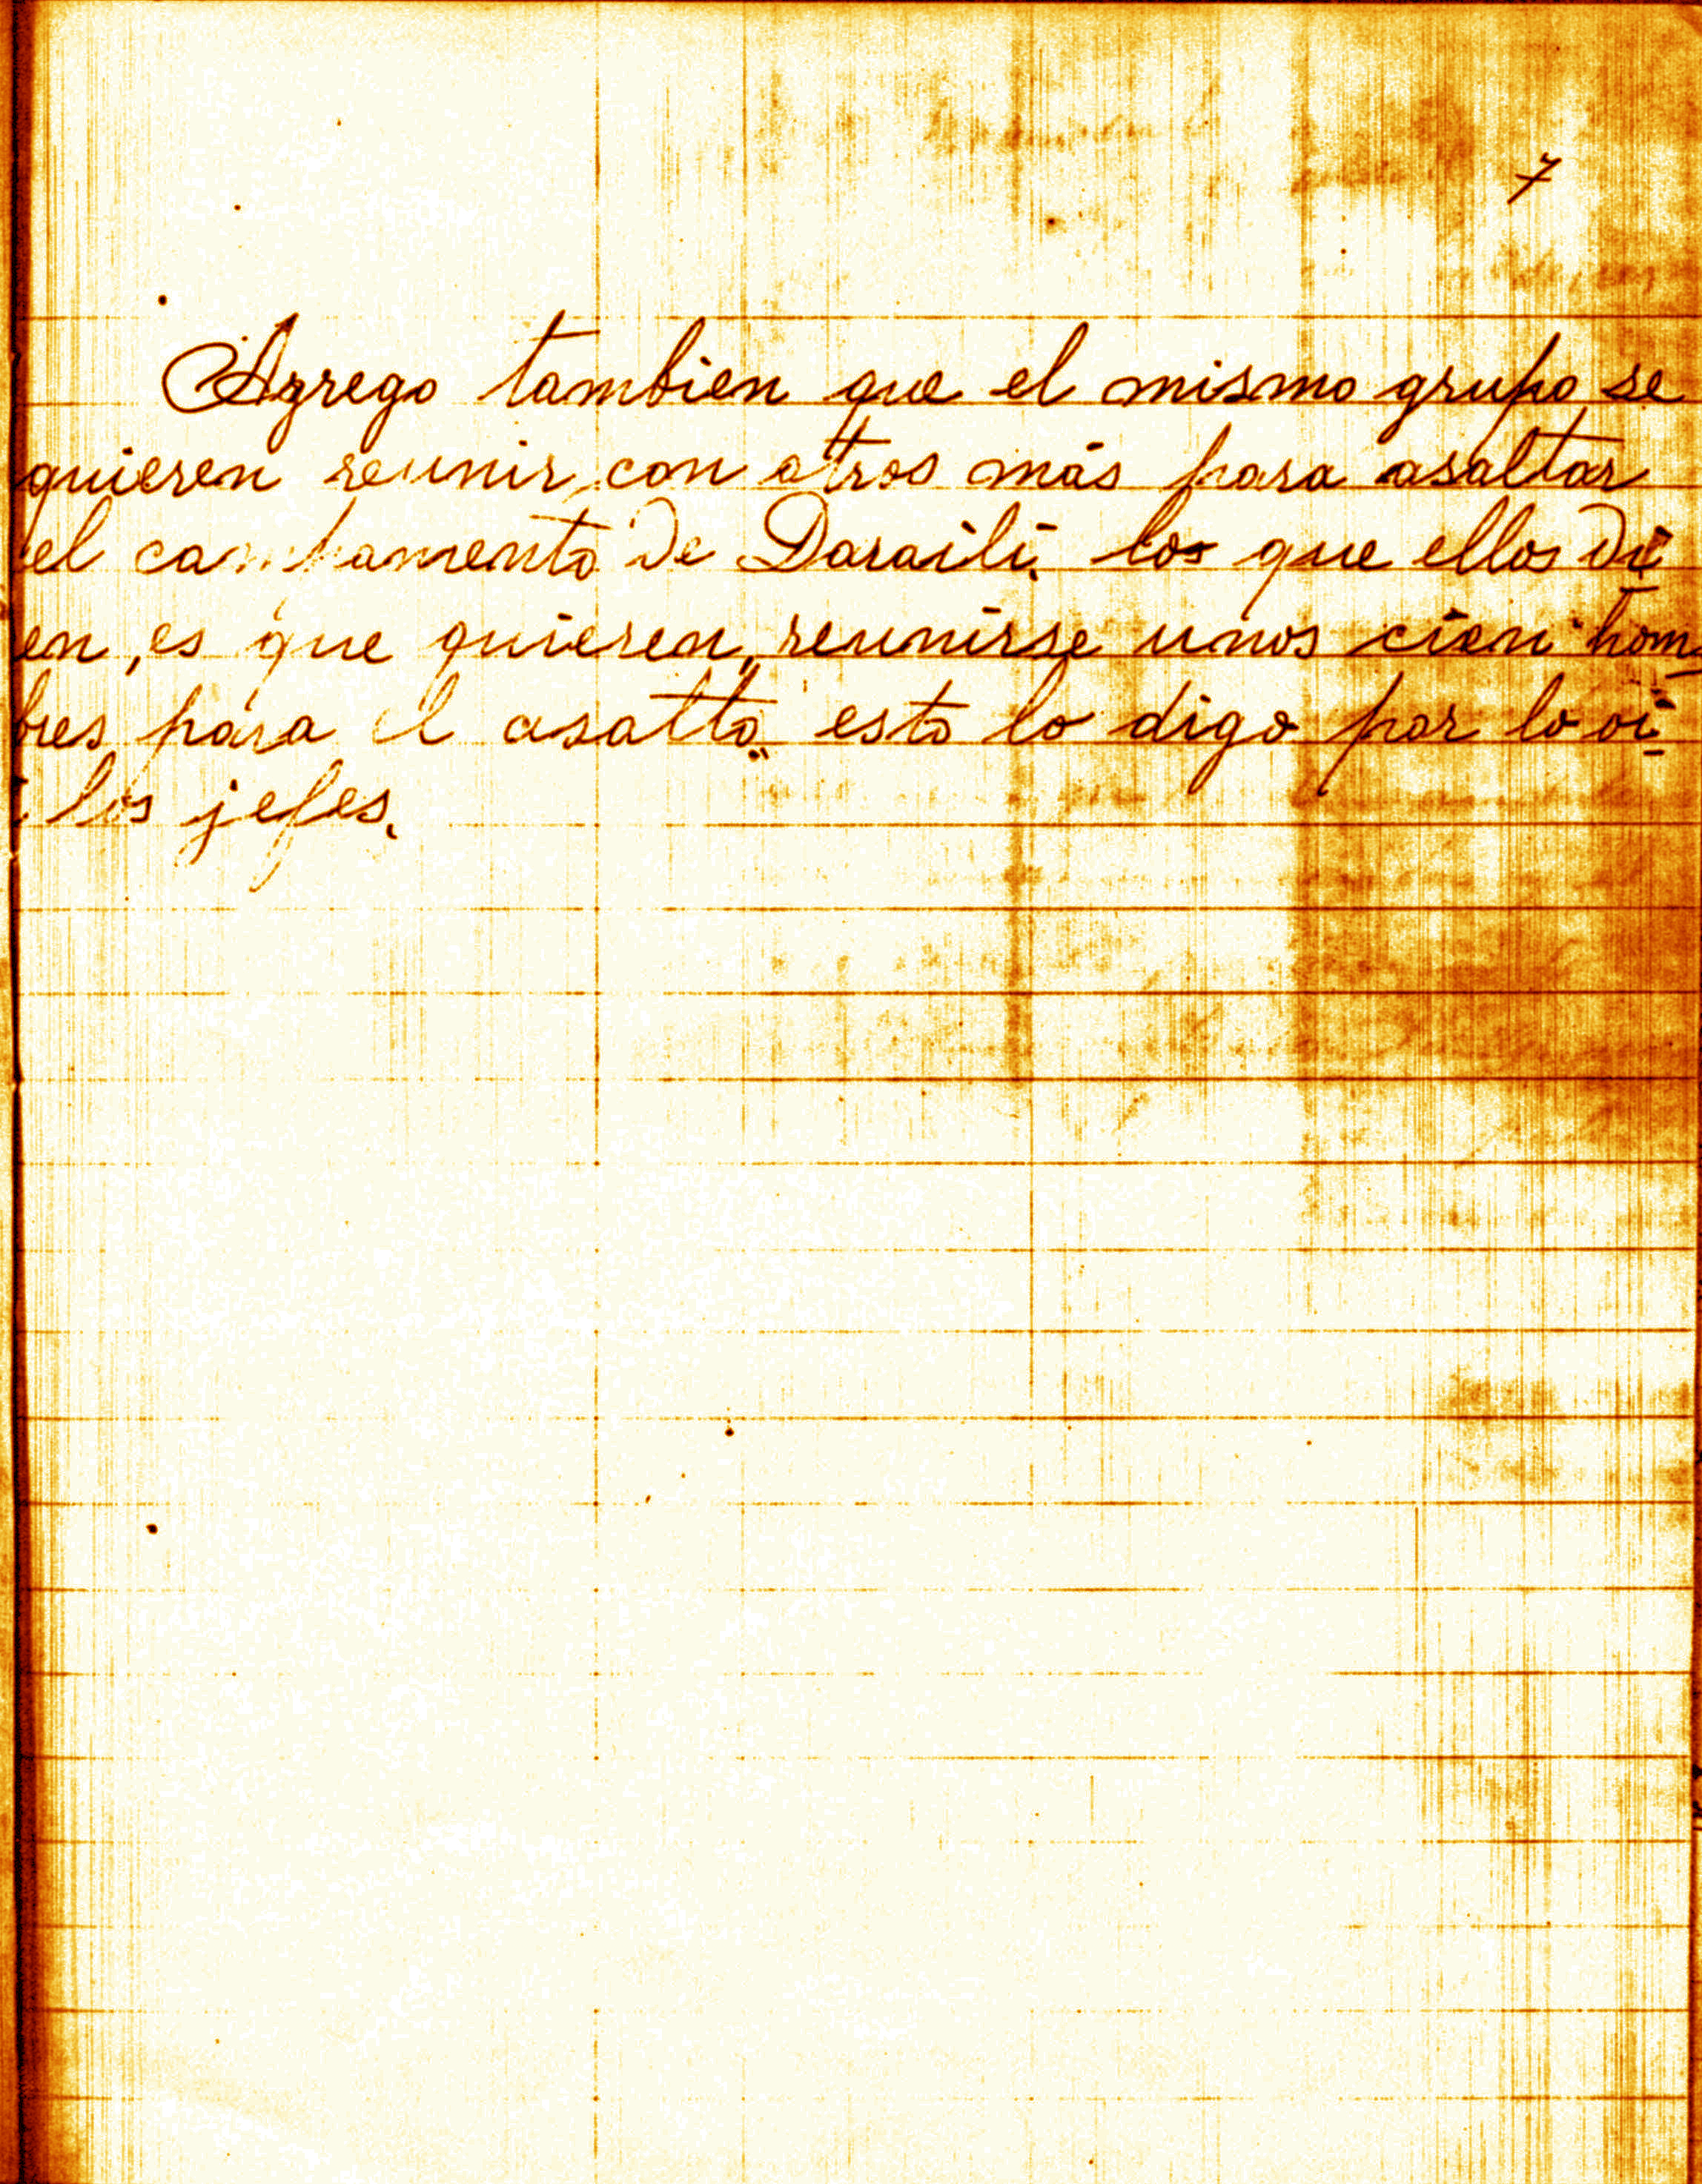 7
Agrego tambien que el mismo grupo se
quieren reunir, con otros más para asaltar
el campamento de Darailí, los que ellos di
en, es que quieren, reunirse unos cien hom-
bres para el asalto, esto lo digo por lo oí
los jefes.